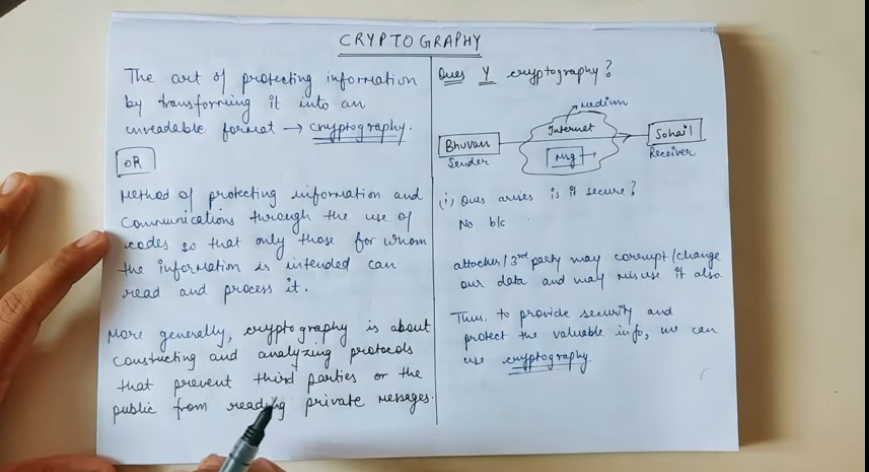 CRYPTOGRAPHY
The art of protecting information
by transforming it into an
unreadable format → cryptography.
OR
Method of protecting information and
Communications through the use of
codes so that only those for whom
the information is intended can
read and process it.
More generally, cryptography is about
constructing and analyzing protocols
that prevent third parties or the
public from reading private messages.
Ques Y cryptography?
medium
Internet
Bhuvan
Sohail
Msg
Sender
Receiver
(i) Ques arises is it secure?
No b/c
attacker/3rd party may corrupt/change
our data and may misuse it also
Thus, to provide security and
protect the valuable info, we can
use cryptography.